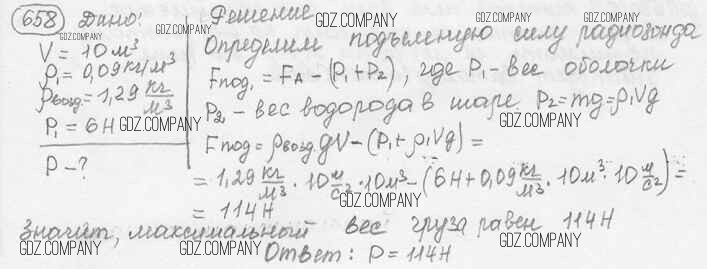 658 Дано: Решение
V = 10 м³
ρ₁ = 0,09 кг/м³
ρвозд. = 1,29 кг/м³
P₁ = 6Н
P - ?
Определим подъемную силу радиозонда
Fпод. = FA – (P₁ + P₂), где P₁ – вес оболочки
P₂ – вес водорода в шаре P₂ = mg = ρ₁Vg
Fпод = ρвозд. gV – (P₁ + ρ₁Vg) =
= 1,29 кг/м³ · 10 м/с² · 10 м³ – (6Н + 0,09 кг/м³ · 10 м³ · 10 м/с²) =
= 114Н
Значит, максимальный вес груза равен 114Н
Ответ: P = 114Н
GDZ.COMPANY
GDZ.COMPANY
GDZ.COMPANY
GDZ.COMPANY
GDZ.COMPANY
GDZ.COMPANY
GDZ.COMPANY
GDZ.COMPANY
GDZ.COMPANY
GDZ.COMPANY
GDZ.COMPANY
GDZ.COMPANY